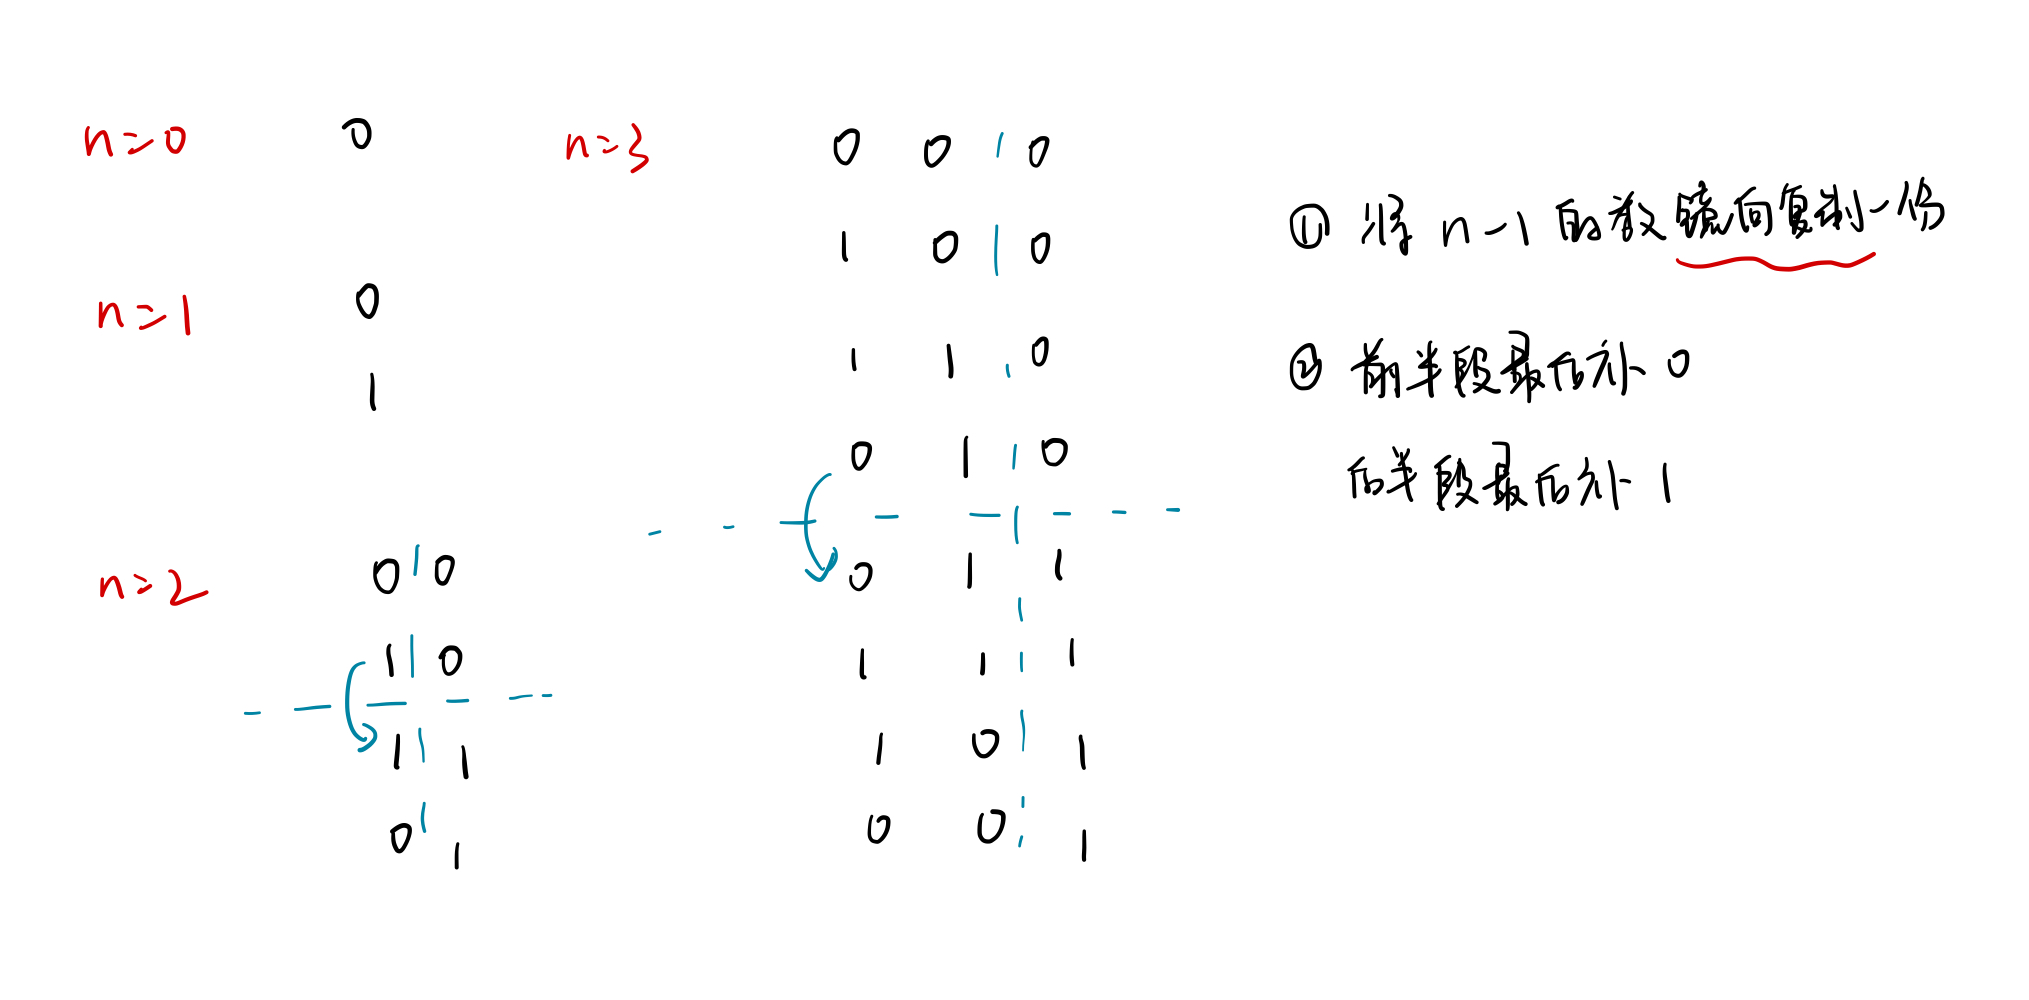 n=0 0
n=1 0
1
n=2 0 0
1 0
1 1
0 1
n=3 0 0 0
1 0 0
1 1 0
0 1 0
0 1 1
1 1 1
1 0 1
0 0 1
① 将 n-1 的数镜向复制一份
② 前半段最后补 0
后半段最后补 1